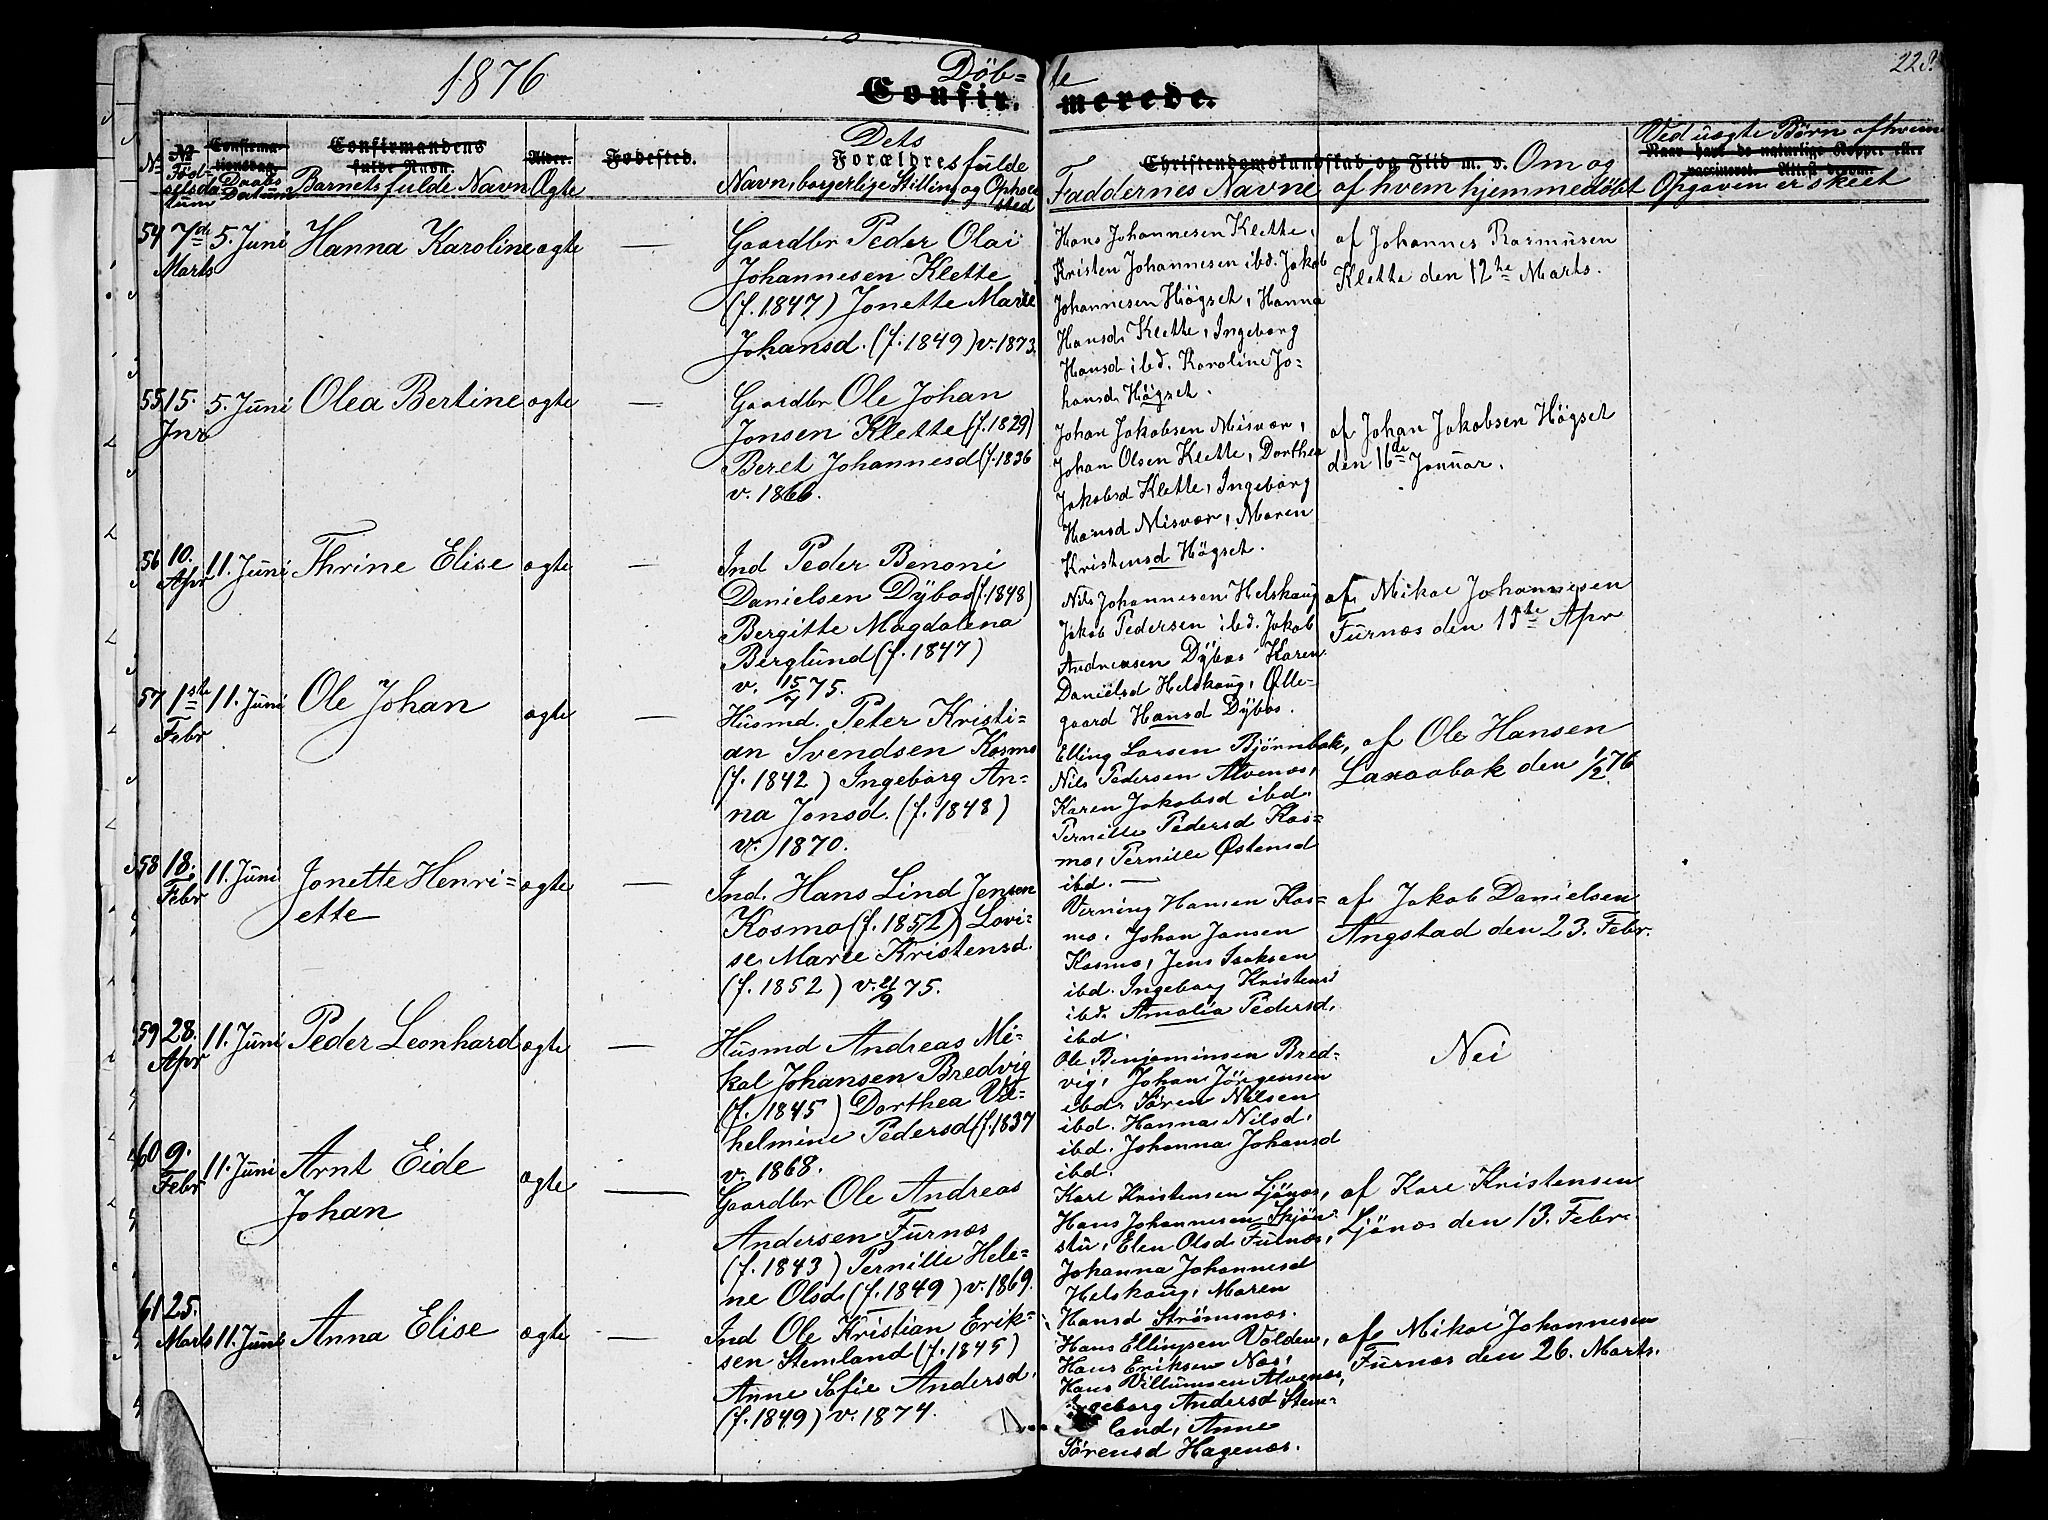 1876
Döb= te
Confir. merede.
228
Nr
No Födselsdatum
Confirmationsdag Daabs Datum
Confirmandens fulde Navn. Barnets fulde Navn
Alder. Ægte
Fødested.
Dets Forældres fulde Navn, borgerlige Stilling og Opholdssted
Christendomskundskab og Flid m. v.
Faddernes Navne
Om og af hvem hjemmedöbt
Ved uægte Börn af hvem Opgaven er skeet
54 7de Marts 5. Juni Hanna Karoline ægte —
Gaardbr Peder Olai
Johannesen Klette
(f. 1847) Jonette Marie
Johansd. (f. 1849) v. 1873.
Hans Johannesen Klette,
Kristen Johannesen ibd. Jakob
Johannesen Högset, Hanna
Hansd. Klette, Ingeborg
Hansd ibd. Karoline Jo=
hansd. Högset.
af Johannes Rasmusen
Klette den 12te Marts.
55 15. Jnr 5. Juni Olea Bertine ægte —
Gaardbr Ole Johan
Jonsen Klette (f. 1829)
Beret Johannesd (f. 1836
v. 1866.
Johan Jakobsen Misvær,
Johan Olsen Klette, Dorthea
Jakobsd Klette, Ingeborg
Hansd Misvær, Maren
Kristensd Högset.
af Johan Jakobsen Högset
den 16de Januar.
56 10. Apr 11. Juni Thrine Elise ægte —
Ind Peder Benoni
Danielsen Dybos (f. 1848)
Bergitte Magdalena
Berglund (f. 1847)
v. 15/7 75.
Nils Johannesen Helskaug
Jakob Pedersen ibd. Jakob
Andreasen Dybos Karen
Danielsd Helskaug, Olle=
gaard Hansd Dybos.
af Mikal Johannesen
Furnæs den 15te Apr
57 1ste Febr 11. Juni Ole Johan ægte —
Husmd. Peter Kristi=
an Svendsen Kosmo
(f. 1842) Ingeborg An=
na Jonsd. (f. 1848)
v. 1870.
Elling Larsen Björnbak,
Nils Pedersen Alvenæs,
Karen Jakobsd ibd.
Pernille Pedersd Kos=
mo, Pernille Østensd
ibd. —
af Ole Hansen
Laxaabak den 1/2 76
58 18. Febr 11. Juni Jonette Henri=
ette ægte —
Ind. Hans Lind Jensen
Kosmo (f. 1852) Lovi=
se Marie Kristensd.
(f. 1852) v. /9 75.
Verning Hansen Kos=
mo, Johan Jansen
Kosmo, Jens Isaksen
ibd. Ingeborg Kristensd
ibd. Amalia Pedersd.
ibd.
af Jakob Danielsen
Angstad den 23. Febr.
59 28. Apr 11. Juni Peder Leonhard ægte —
Husmd Andreas Mi=
kal Johansen Bredvig
(f. 1845) Dorthea Vil=
helmine Pedersd (f. 1837
v. 1868.
Ole Benjaminsen Bred=
vig, Johan Jörgensen
ibd. Sören Nilsen
ibd. Hanna Nilsd.
ibd. Johanna Johansd
ibd.
Nei
60 9. Febr 11. Juni Arnt Eide
Johan ægte —
Gaardbr Ole Andreas
Andersen Furnæs
(f. 1843) Pernille Hele=
ne Olsd (f. 1849) v. 1869.
Karl Kristensen Ljönæs,
Hans Johannesen Skjön=
stu, Elen Olsd Furnæs,
Johanna Johannesd
Helskaug, Maren
Hansd Strömsnæs.
af Karl Kristensen
Ljönæs den 13. Febr.
61 25. Marts 11. Juni Anna Elise ægte —
Ind Ole Kristian Erik=
sen Stemland (f. 1845)
Anne Sofie Andersd.
(f. 1849) v. 1874.
Hans Ellingsen Volden,
Hans Eriksen Næs,
Hans Villumsen Alvenæs,
Ingeborg Andersd Stem=
land, Anne
Sörensd Hagenæs.
af Mikal Johannesen
Furnæs den 26. Marts.